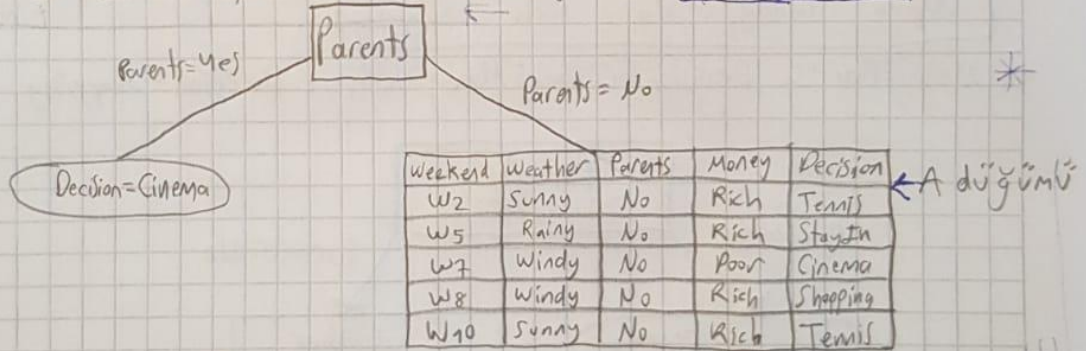 Parents
Parents=Yes
Parents=No
Decision=Cinema
Weekend Weather Parents Money Decision
W2 Sunny No Rich Tennis
W5 Rainy No Rich StayIn
W7 Windy No Poor Cinema
W8 Windy No Rich Shopping
W10 Sunny No Rich Tennis
A düğümü